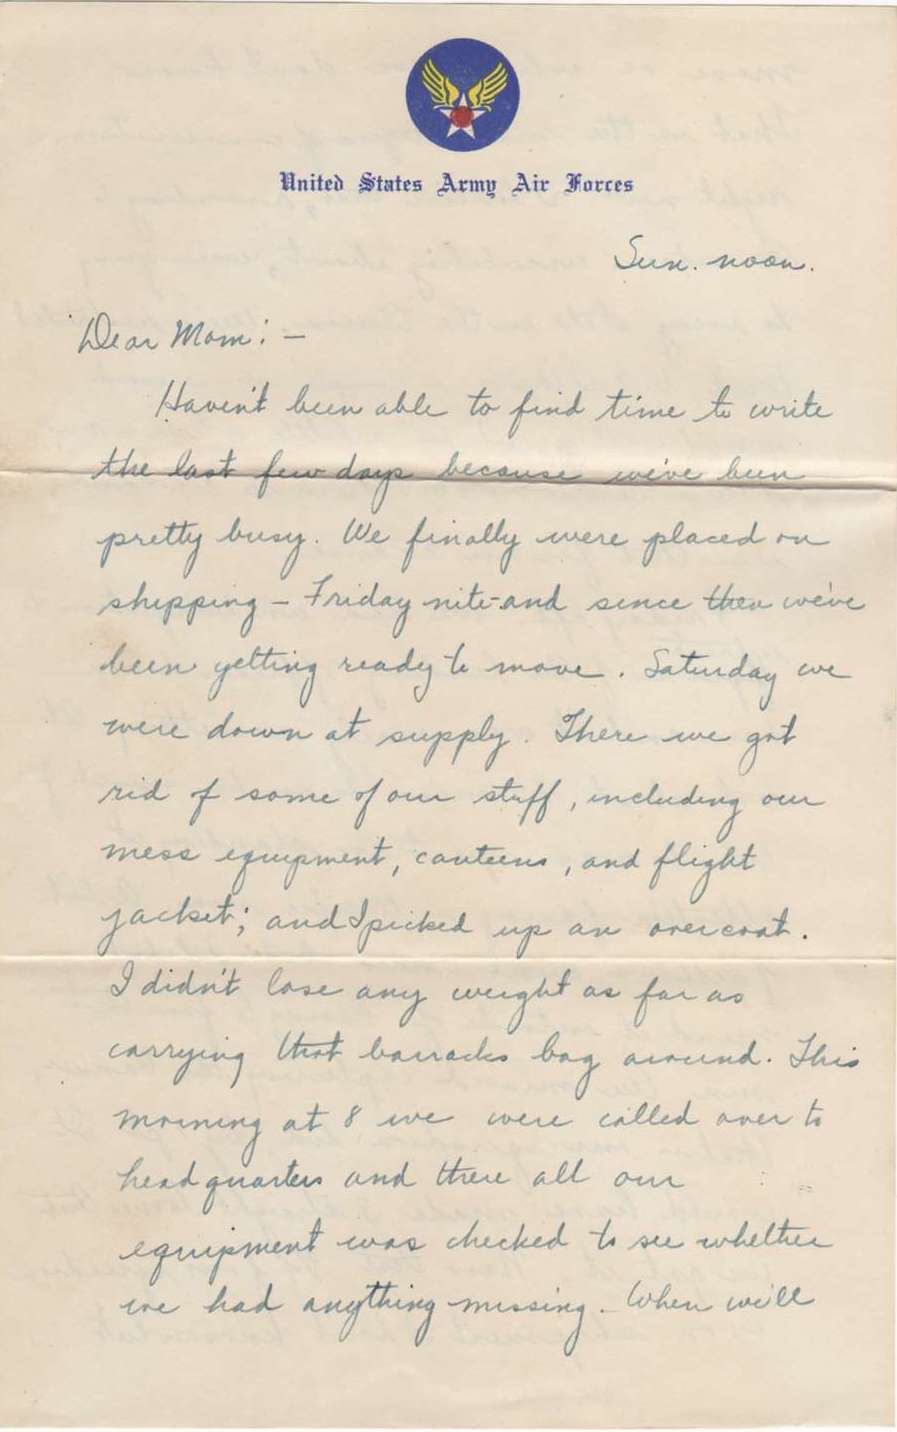 United States Army Air Forces
Sun. noon.
Dear Mom: —
Haven't been able to find time to write
the last few days because we've been
pretty busy. We finally were placed on
shipping – Friday nite – and since then we've
been getting ready to move. Saturday we
were down at supply. There we got
rid of some of our stuff, including our
mess equipment, canteens, and flight
jacket; and I picked up an overcoat.
I didn't lose any weight as far as
carrying that barracks bag around. This
morning at 8 we were called over to
headquarters and there all our
equipment was checked to see whether
we had anything missing. When we'll